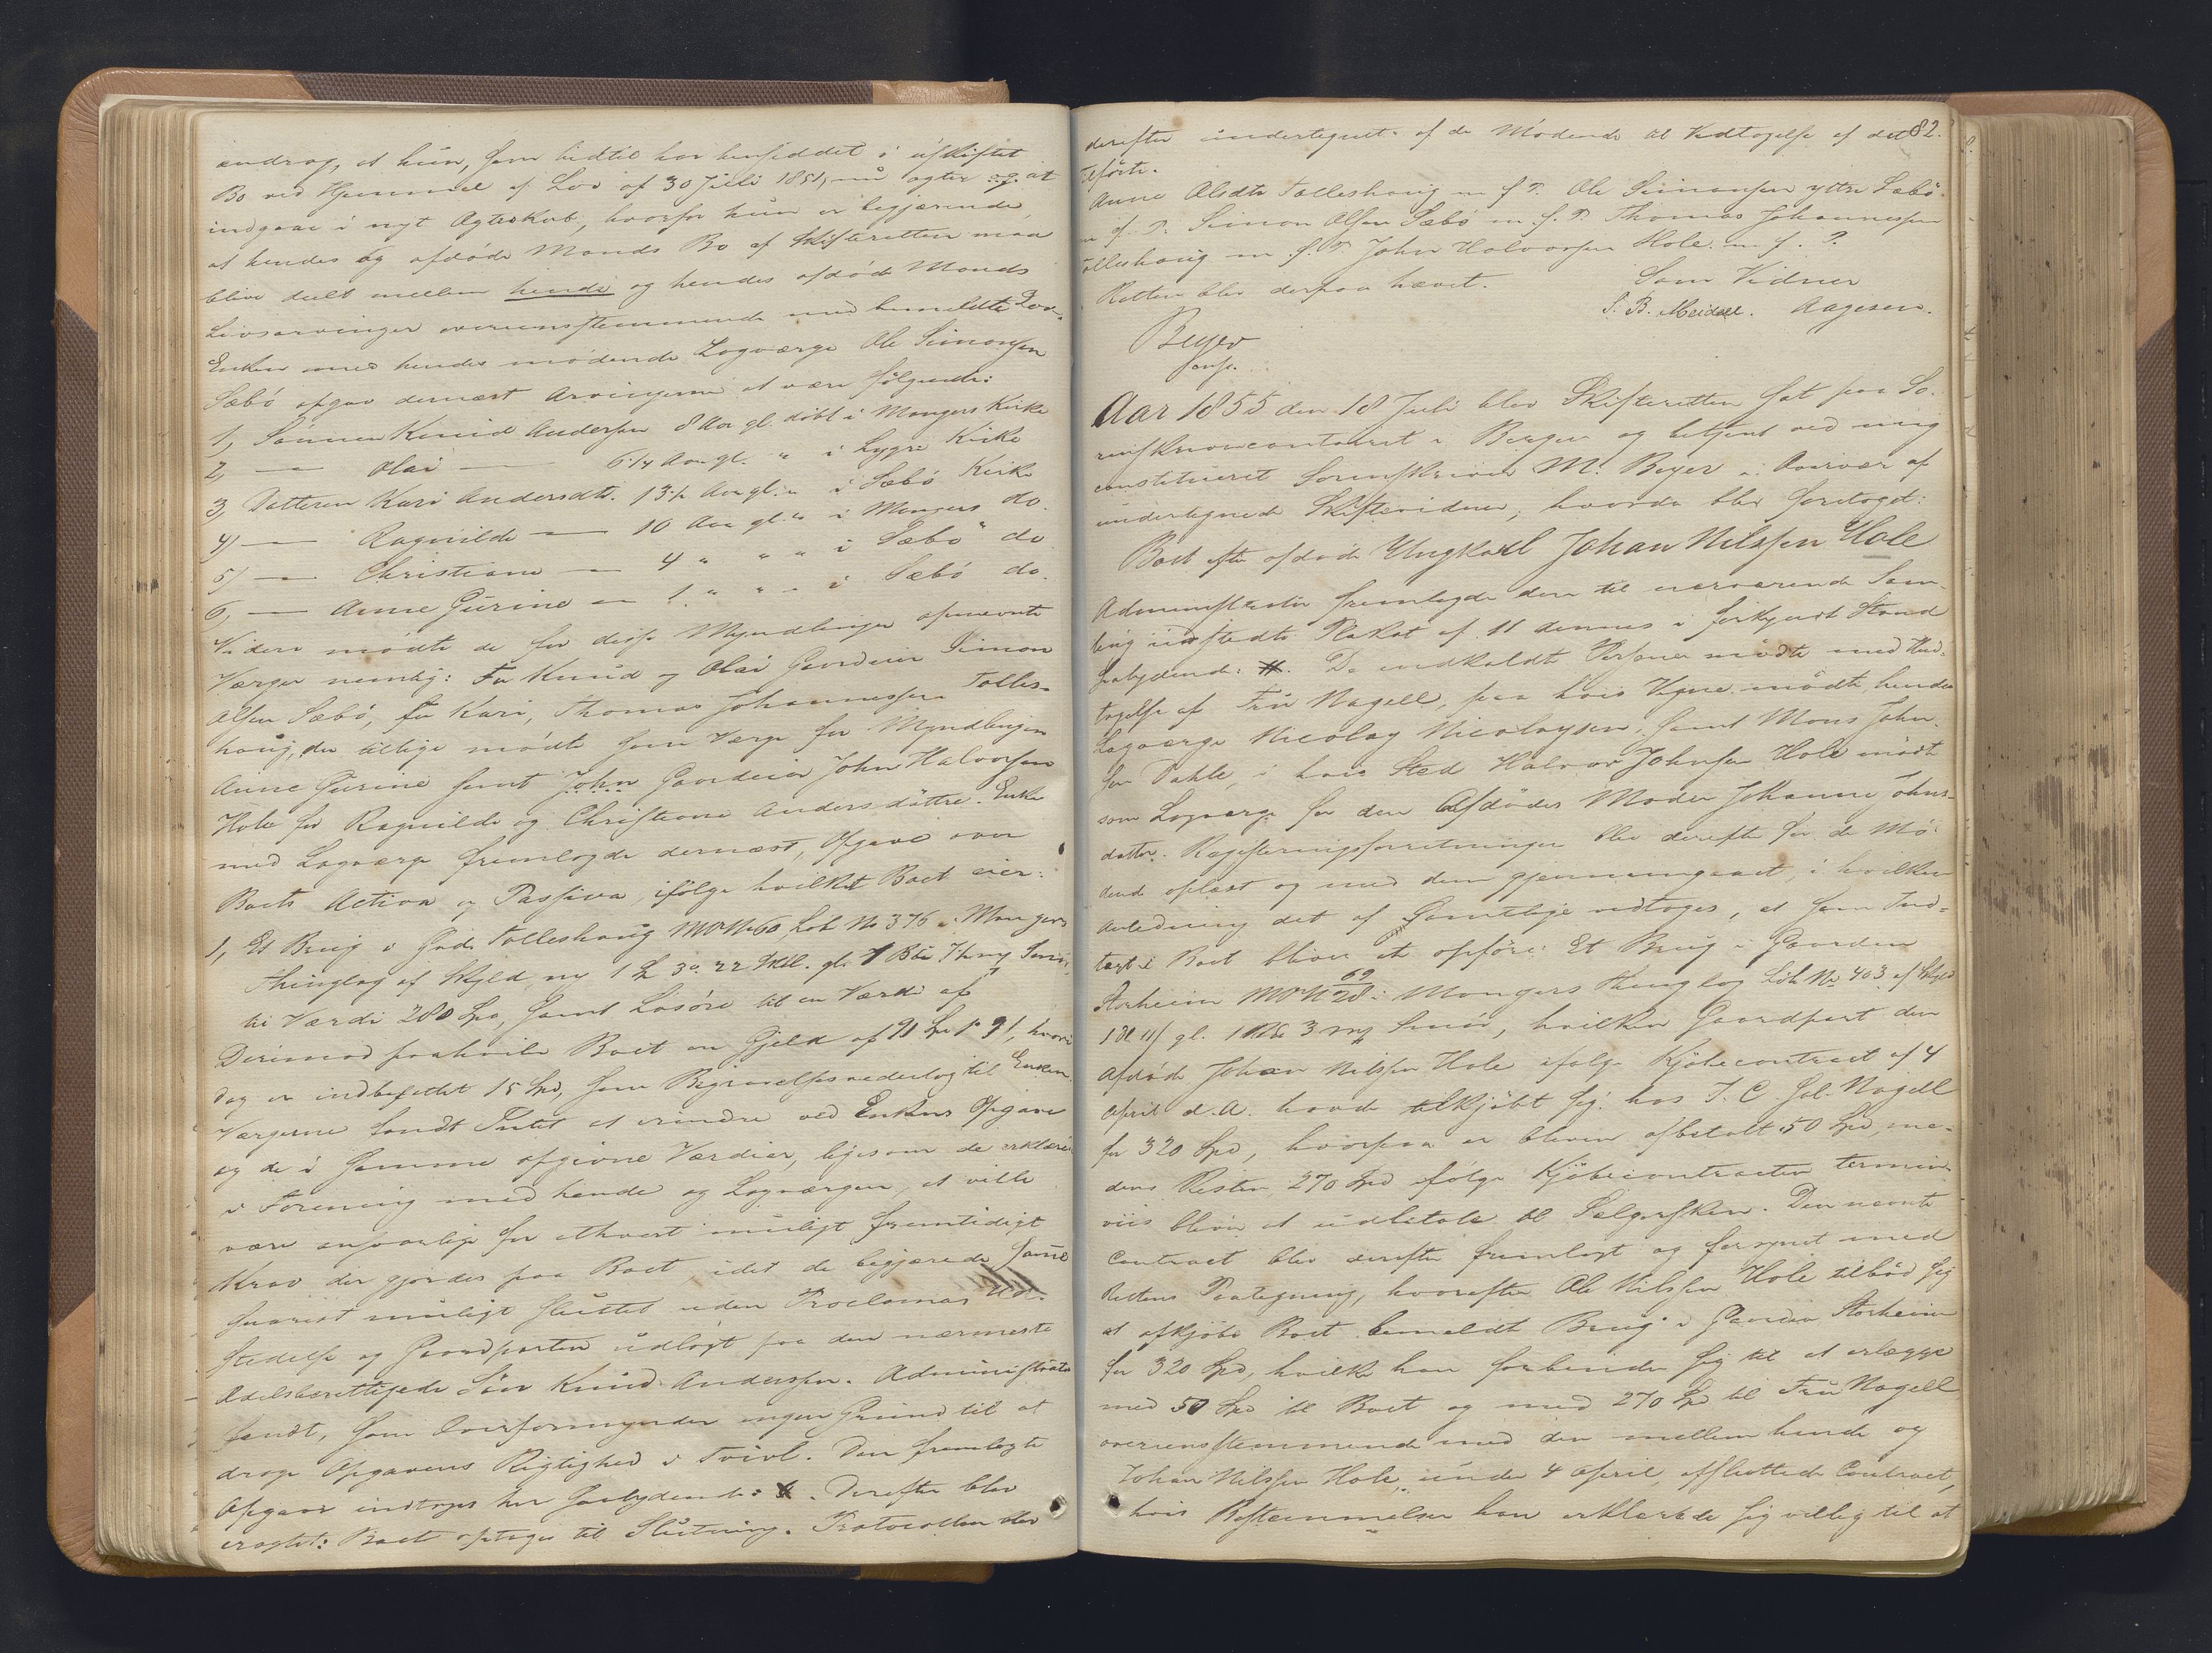 andrag, at hun, som hidtil har hensiddet i uskiftet
Bo ved Hjemmel af Lov af 30 Juli 1851, nu agter og at
indgaae i nyt Ægteskab, hvorfor hun er begjærende,
at hendes og afdøde Mands Bo af Skifteretten maa
blive deelt mellem hende og hendes afdøde Mands
Livsarvinger overeensstemmende med bemeldte Lov.
Enken med hendes mødende Lagværge Ole Simonsen
Sæbö opgav dernæst Arvingerne at være følgende:
1, Sønnen Knud Andersen 8 Aar gl. døbt i Mangers Kirke
2, — Olai — 6 1/4 Aar gl. " i Lygre Kirke
3, Datteren Kari Andersdtr. 13 1/2 Aar gl. " i Sæbö Kirke
4) — Ragnilde — 10 Aar gl. " i Mangers do.
5) — Christiane — 4 " " " i Sæbö do
6, — Anne Gurine — 1 " " " i Sæbö do.
Videre mødte de for disse Myndlinger opnævnte
Værger nemlig: For Knud og Olai Gaardeier Simon
Olsen Sæbö, for Kari, Thomas Johannessen Tolles-
houg, der tillige mødte som Værge for Myndlingen
Anne Gurine samt John Gaardeier John Halvorsen
Hole for Ragnilde og Christiane Andersdøttre. Enken
med Lagværge fremlagde dernæst, Opgave over
Boets Activa og Passiva, ifølge hvilket Boet eier:
1, Et Brug i Gaard Tolleshoug MN 60 Løb No 376 i Mangers
Thinglag af Skyld ny 1 D 3 o. 22 Skill. gl. 1 Bb Smør,
til Værdi 280 Spd, samt Løsöre til en Værdi af
Derimod paahviler Boet en Gjeld af 91 Spd 1 o 91, hvori
dog er indbefattet 15 Spd, som Begravelsesvederlag til Enken.
Værgerne fandt Intet at erindre ved Enkens Opgave
og de i samme opgivne Værdier, ligesom de erklærede
i Forening med hende og Lagværgen, at ville
være ansvarlige for ethvert muligt fremtidigt
Krav der gjordes paa Boet idet de begjærede samme
snarest muligt sluttet uden Proclamas Ud-
stedelse og Gaardparten udlagt paa den nærmeste
Odelsberettigede Søn Knud Andersen. Administrator
fandt, som Overformynder ingen Grund til at
drage Opgavens Rigtighed i Tvivl. Den fremlagte
Opgave indtages her saalydende: #. Derefter blev
eragtet: Boet optages til Slutning. Protocollen blev
82.
derefter undertegnet af de Mødende til Vedtagelse af det
Tilførte.
Anne Olsdtr Tolleshoug m. f. P. Ole Simonsen yttre Sæbö.
m. f. P. Simon Olsen Sæbö m. f. P. Thomas Johannessen
Tolleshoug m. f. P. John Halvorsen Hole. m. f. P.
Retten blev derpaa hævet. Som Vidner
S. B. Meidell. Aagesen.
Beyer
const.
Aar 1855 den 18 Juli blev Skifteretten sat paa So-
renskrivercontoiret i Bergen og betjent ved mig
constitueret Sorenskriver M. Beyer i Overvær af
undertegnede Skiftevidner, hvorda blev foretaget:
Boet efter afdøde Ungkarl Johan Nilssen Hole
Administrator fremlagde den til nærværende Sam-
ling udstedte Plakat af 11 dennes i forkyndt Stand
saalydende: #. De indkaldte Personer mødte med Und-
tagelse af Fru Nagell, paa hvis Vegne mødte hendes
Lagværge Nicolay Nicolaysen, samt Mons John-
sen Dahle, i hvis Sted Halvor Johnsen Hole mødte
som Lagværge for den Afdødes Moder Johanne Johns-
datter. Registreringsforretningen blev derefter for de Mø-
dende oplæst og med dem gjennemgaaet, i hvilken
Anledning det af samtlige vedtoges, at som Ind-
tægt i Boet bliver at opføre: Et Brug i Gaarden
Storheim MN 62/28 i Mangers Thinglag Løb No 403 af Skyld
1 D 11 s gl. 1 Bb 3 mrk Smör, hvilken Gaardpart den
afdøde Johan Nilssen Hole ifølge Kjöbecontract af 4
April d. A. havde tilkjöbt sig hos I. C. Gel. Nagell
for 320 Spd, hvorpaa er bleven afbetalt 50 Spd, me-
dens Resten 270 Spd ifølge Kjöbecontracten termin-
viis bliver at udbetale til Sælgersken. Den nævnte
Contract blev derefter fremlagt og forsynet med
Rettens Paategning, hvorefter Ole Nilssen Hole tilböd sig
at afkjöbe Boet bemeldte Brug i Gaarden Storheim
for 320 Spd, hvilke han forbandt sig til at erlægge
med 50 Spd til Boet og med 270 Spd til Fru Nagell
overeensstemmende med den mellem hende og
Johan Nilssen Hole, under 4 April, afsluttede Contract,
hvis Bestemmelser han erklærede sig villig til at